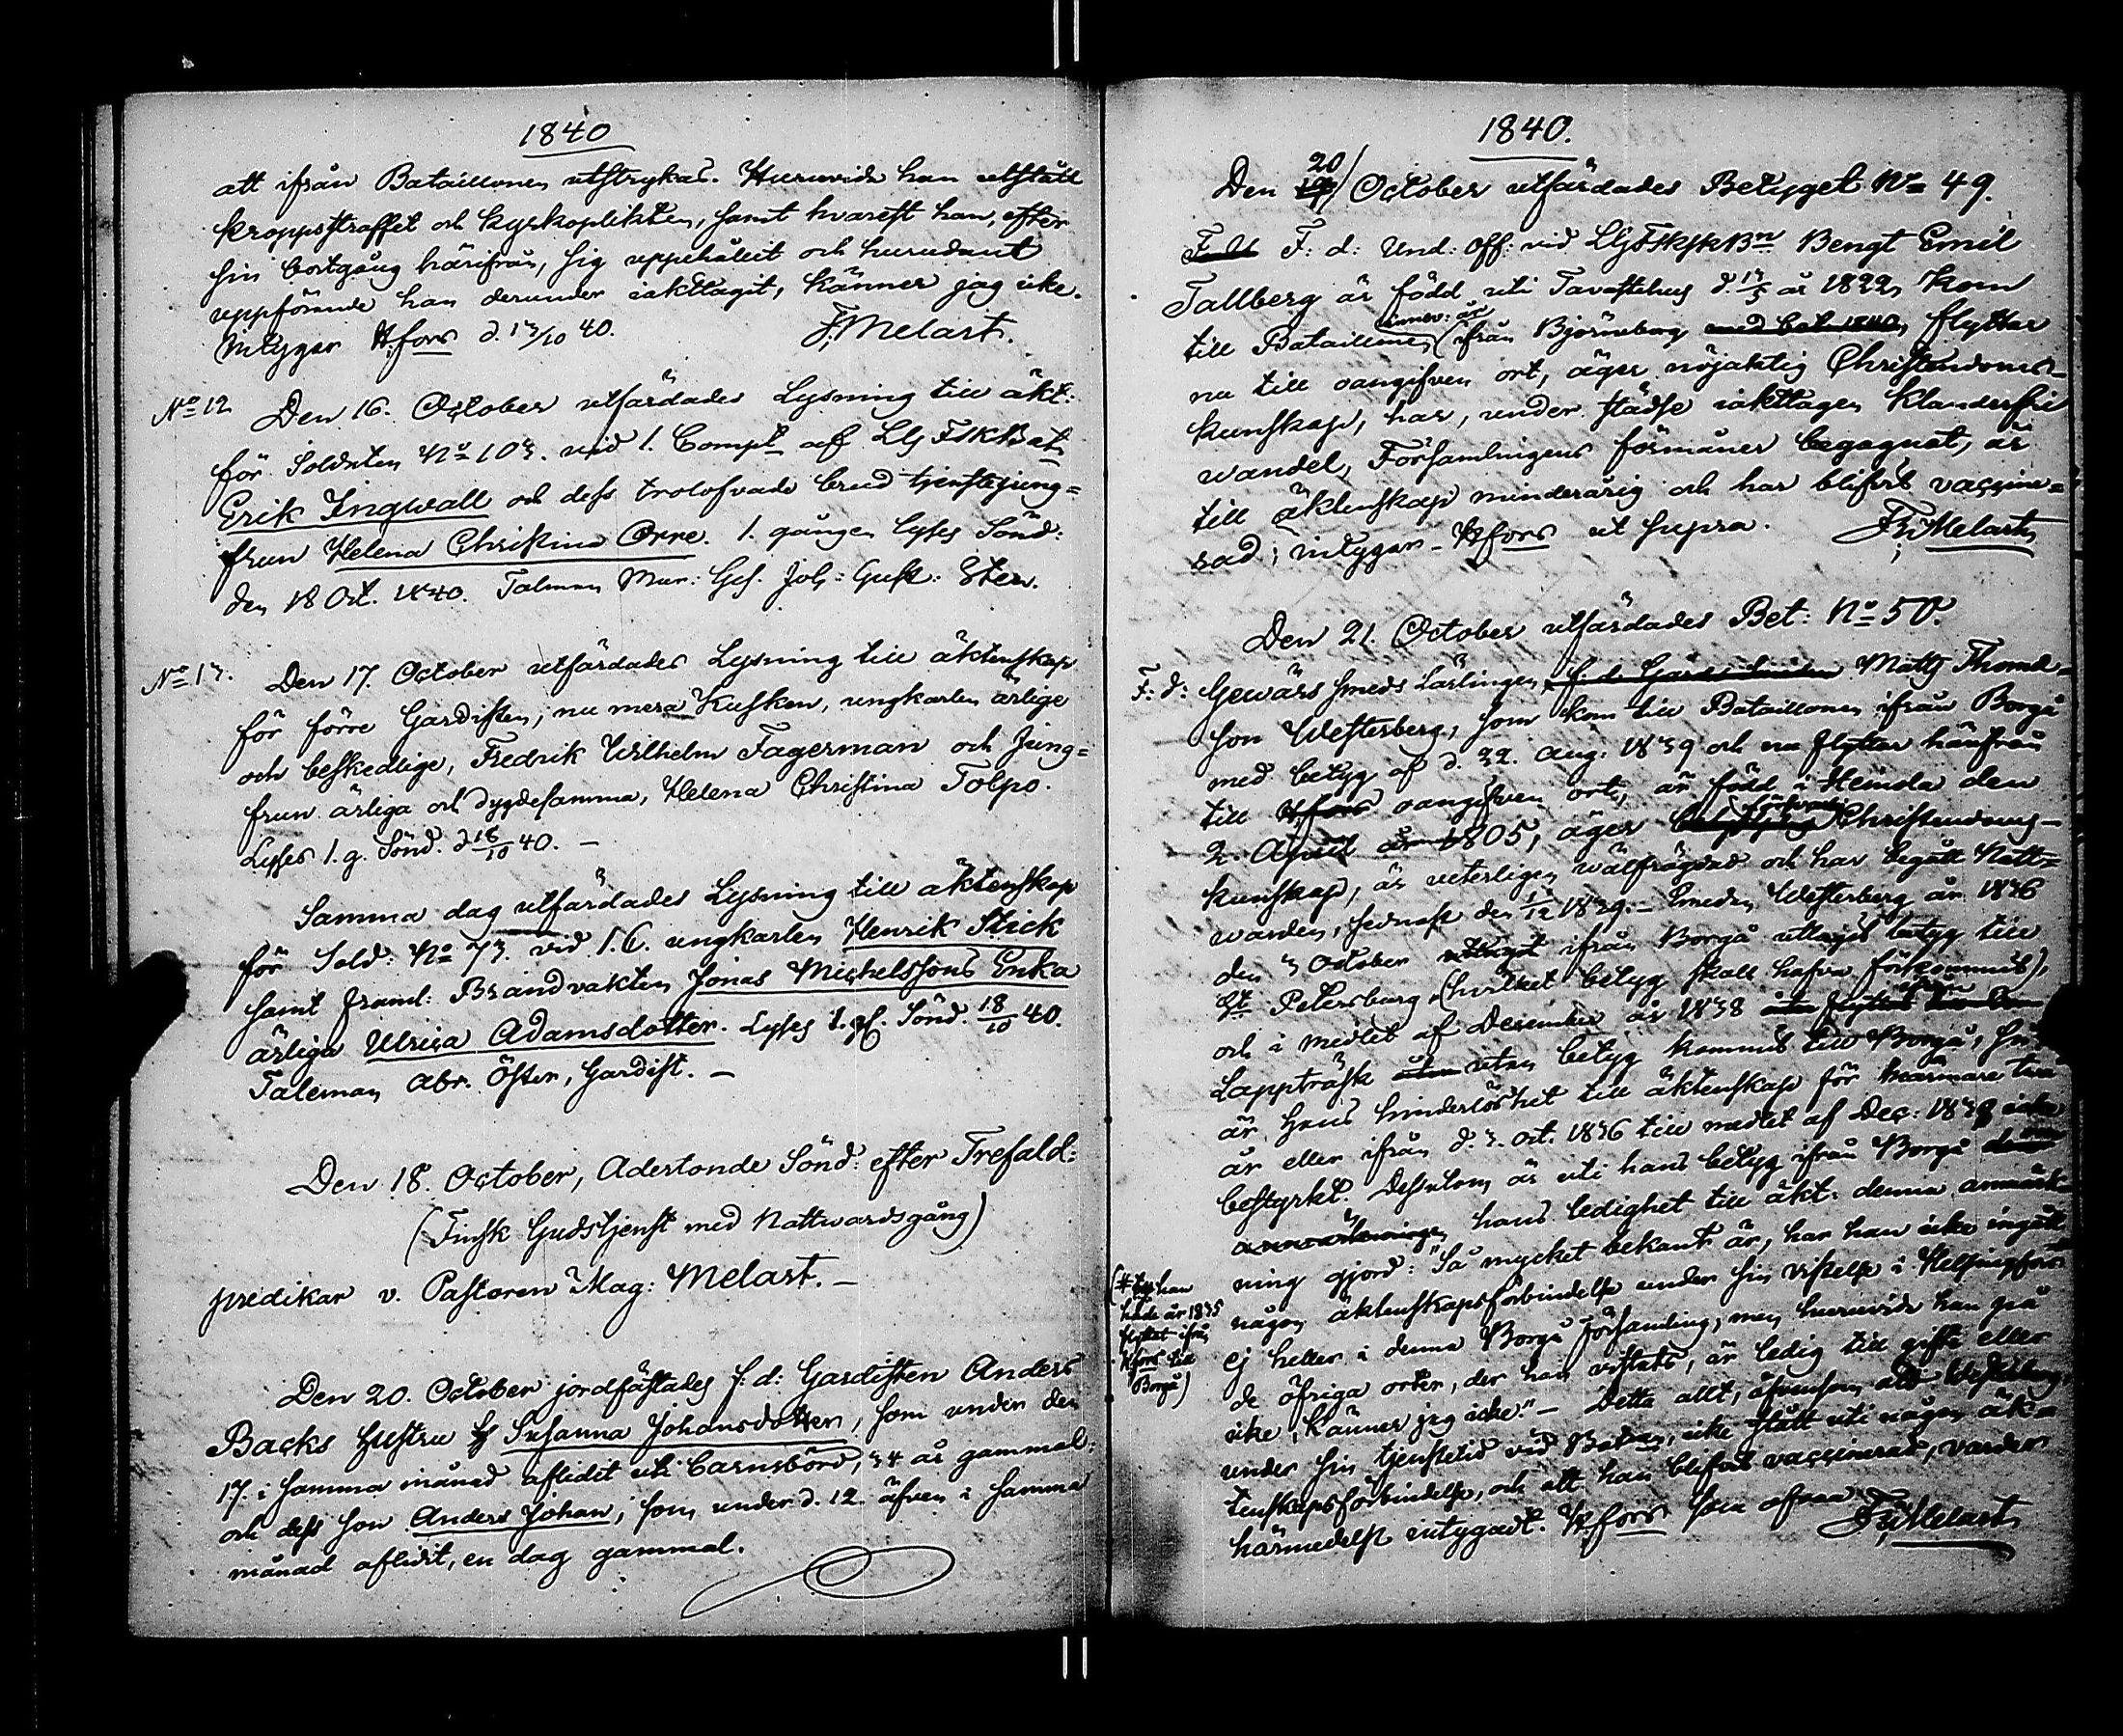 1840
att ifrån Bataillonen utstrykas. Huruvida han utstått
kroppsstraffet och kyrkoplikten, samt hvarest han, efter
sin bortgång härifrån, sig uppehållit och hurudant
uppförande han derunder iakttagit, känner jag icke.
Intygar H:fors d. 13/10 40. F. Melart.
No 12 Den 16. October utfärdades Lysning till äkt:
för Soldaten No 103. vid 1. Compt af LG FSkBat
Erik Ingwall och dess trolofvade brud tjenstejung=
frun Helena Christina Orre. 1. gången lyses Sönd:
den 18 Oct. 1840. Talman Mur: Ges. Joh: Gust: Sten.
No 13. Den 17. October utfärdades Lysning till äktenskap
för förre Gardisten, nu mera Kusken, ungkarlen ärlige
och beskedlige, Fredrik Wilhelm Fagerman och Jung=
frun ärliga och dygdesamma, Helena Christina Tolpo.
Lyses 1. g. Sönd. d 18/10 40. –
Samma dag utfärdades Lysning till äktenskap
för Sold: No 73. vid 1. C. ungkarlen Henrik Stick
samt framl: Brandvakten Jonas Michelssons Enka
ärliga Ulrica Adamsdotter. Lyses 1. g. Sönd. 18/10 40.
Taleman Abr. Östen, Gardist. –
Den 18. October, Adertonde Sönd: efter Trefald:
(Finsk Gudstjenst med Nattwardsgång)
predikar v. Pastoren Mag: Melart. –
Den 20. October jordfästades f: d: Gardisten Anders
Backs hustru Susanna Johansdotter, som under den
17. i samma månad aflidit uti barnsbörd, 34 år gammal:
och dess son Anders Johan, som under d. 12. äfven i samma
månad aflidit, en dag gammal.
1840.
Den 20/ October utfärdades Betyget No 49.
F: d: Und: Off: vid LG FSkSkBn Bengt Emil
Tallberg är född uti Tavastehus d. 13/5 år 1822, kom
till Bataillonen (innev: år ifrån Björneborg med bet 1840, flyttar
nu till oangifven ort, äger nöjaktig Christendoms=
kunskap, har, under städse iakttagen klanderfri
wandel, Församlingens förmåner begagnat, är
till äktenskap minderårig och har blifvit vaccine=
rad; intygar – H:fors ut supra. F. W. Melart
Den 21. October utfärdades Bet: No 50.
F: d: Gewärssmeds Lärlingen Matts Thomas=
son Westerberg, som kom till Bataillonen ifrån Borgå
med betyg af d. 22. Aug: 1839 och nu flyttar härifrån
till H:fors oangifven ort, är född i Heinola den
2. April år 1805, äger försvarlig Christendoms=
kunskap, är veterligen välfrägdad och har begått Natt=
warden, sednast den 1/12 1839. – Smeden Westerberg år 1836
den 3 October uttagit ifrån Borgå uttagit betyg till
St Petersburg (hvilket betyg skall hafva förkommit),
och i medlet af December år 1838 ifrån
Lappträsk utan betyg kommit till Borgå,
är hans hinderlöshet till äktenskap för närmare tvu
år eller ifrån d. 3. Oct. 1836 till medlet af Dec: 1838 icke
bestyrkt. Dessutom är uti hans betyg ifrån Borgå
hans ledighet till äkt: denna anmärk=
ning gjord: "Så mycket bekant är, har han icke ingått
någon äktenskapsförbindelse under sin vistelse i Helsingfors
ej heller i denna Borgå församling, men huruvida han på
de öfriga orter, der han vistats, är ledig till gifte eller
icke, känner jag icke." – Detta allt, äfvensom att Westerberg,
under sin tjenstetid vid Batn, icke stått uti någon äk=
tenskapsförbindelse, och att han blifvit vaccinerad, varder
härmedelst intygadt. H:fors som ofvan F. W. Melart
(# han
hade år 1835
flyttat ifrån
H:fors till
Borgå)